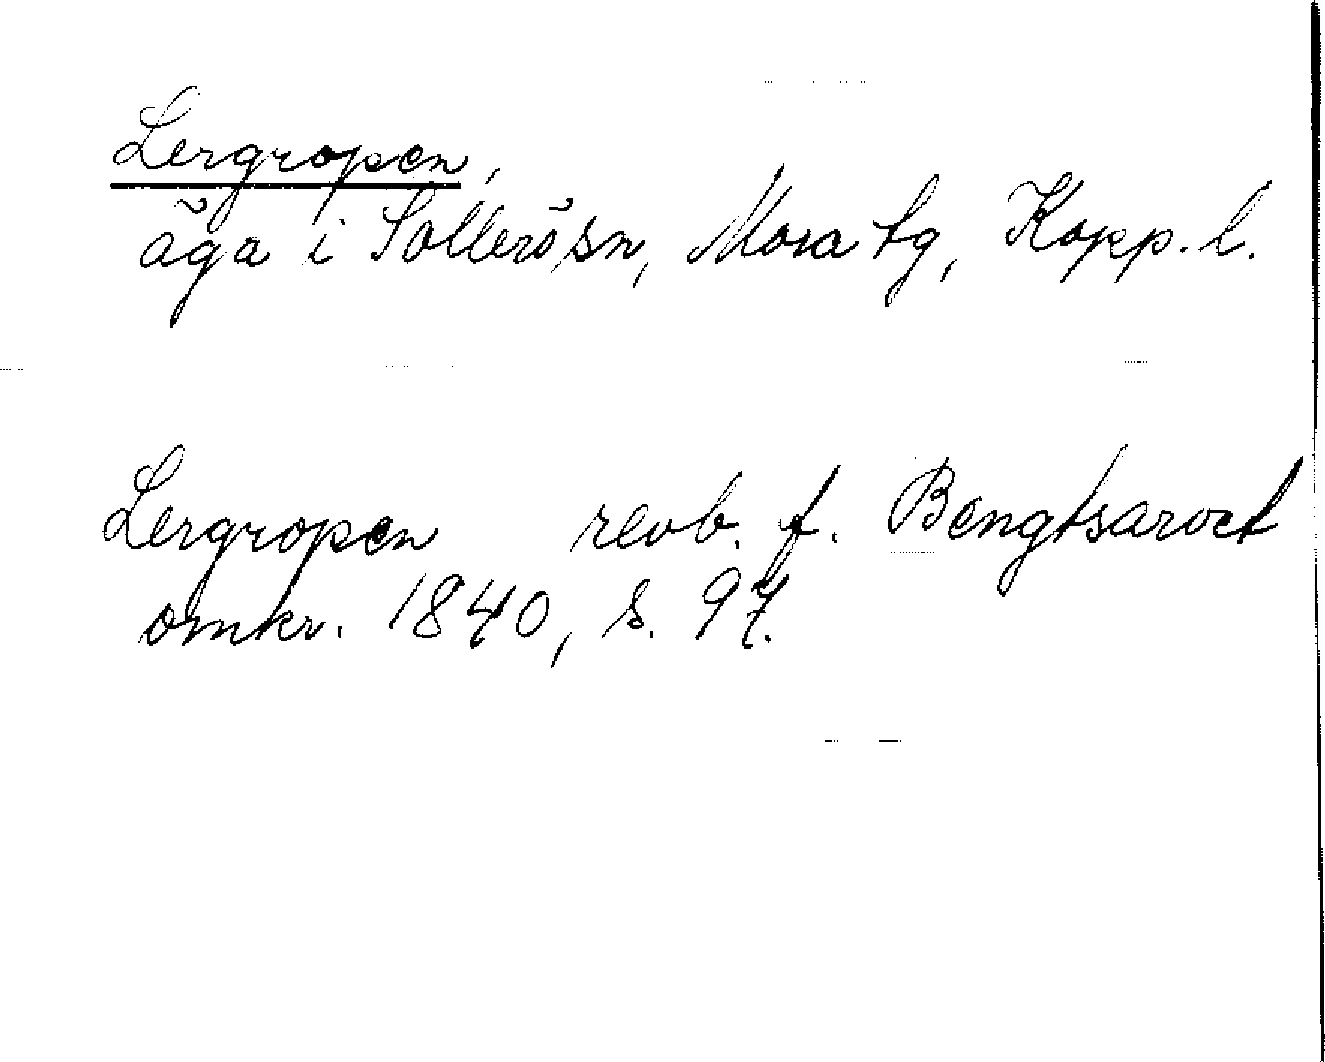 Lergropen,
äga i Sollerö sn, Mora tg, Kopp. l.
Lergropen revb. f. Bengtsarvet
omkr. 1840, s. 97.